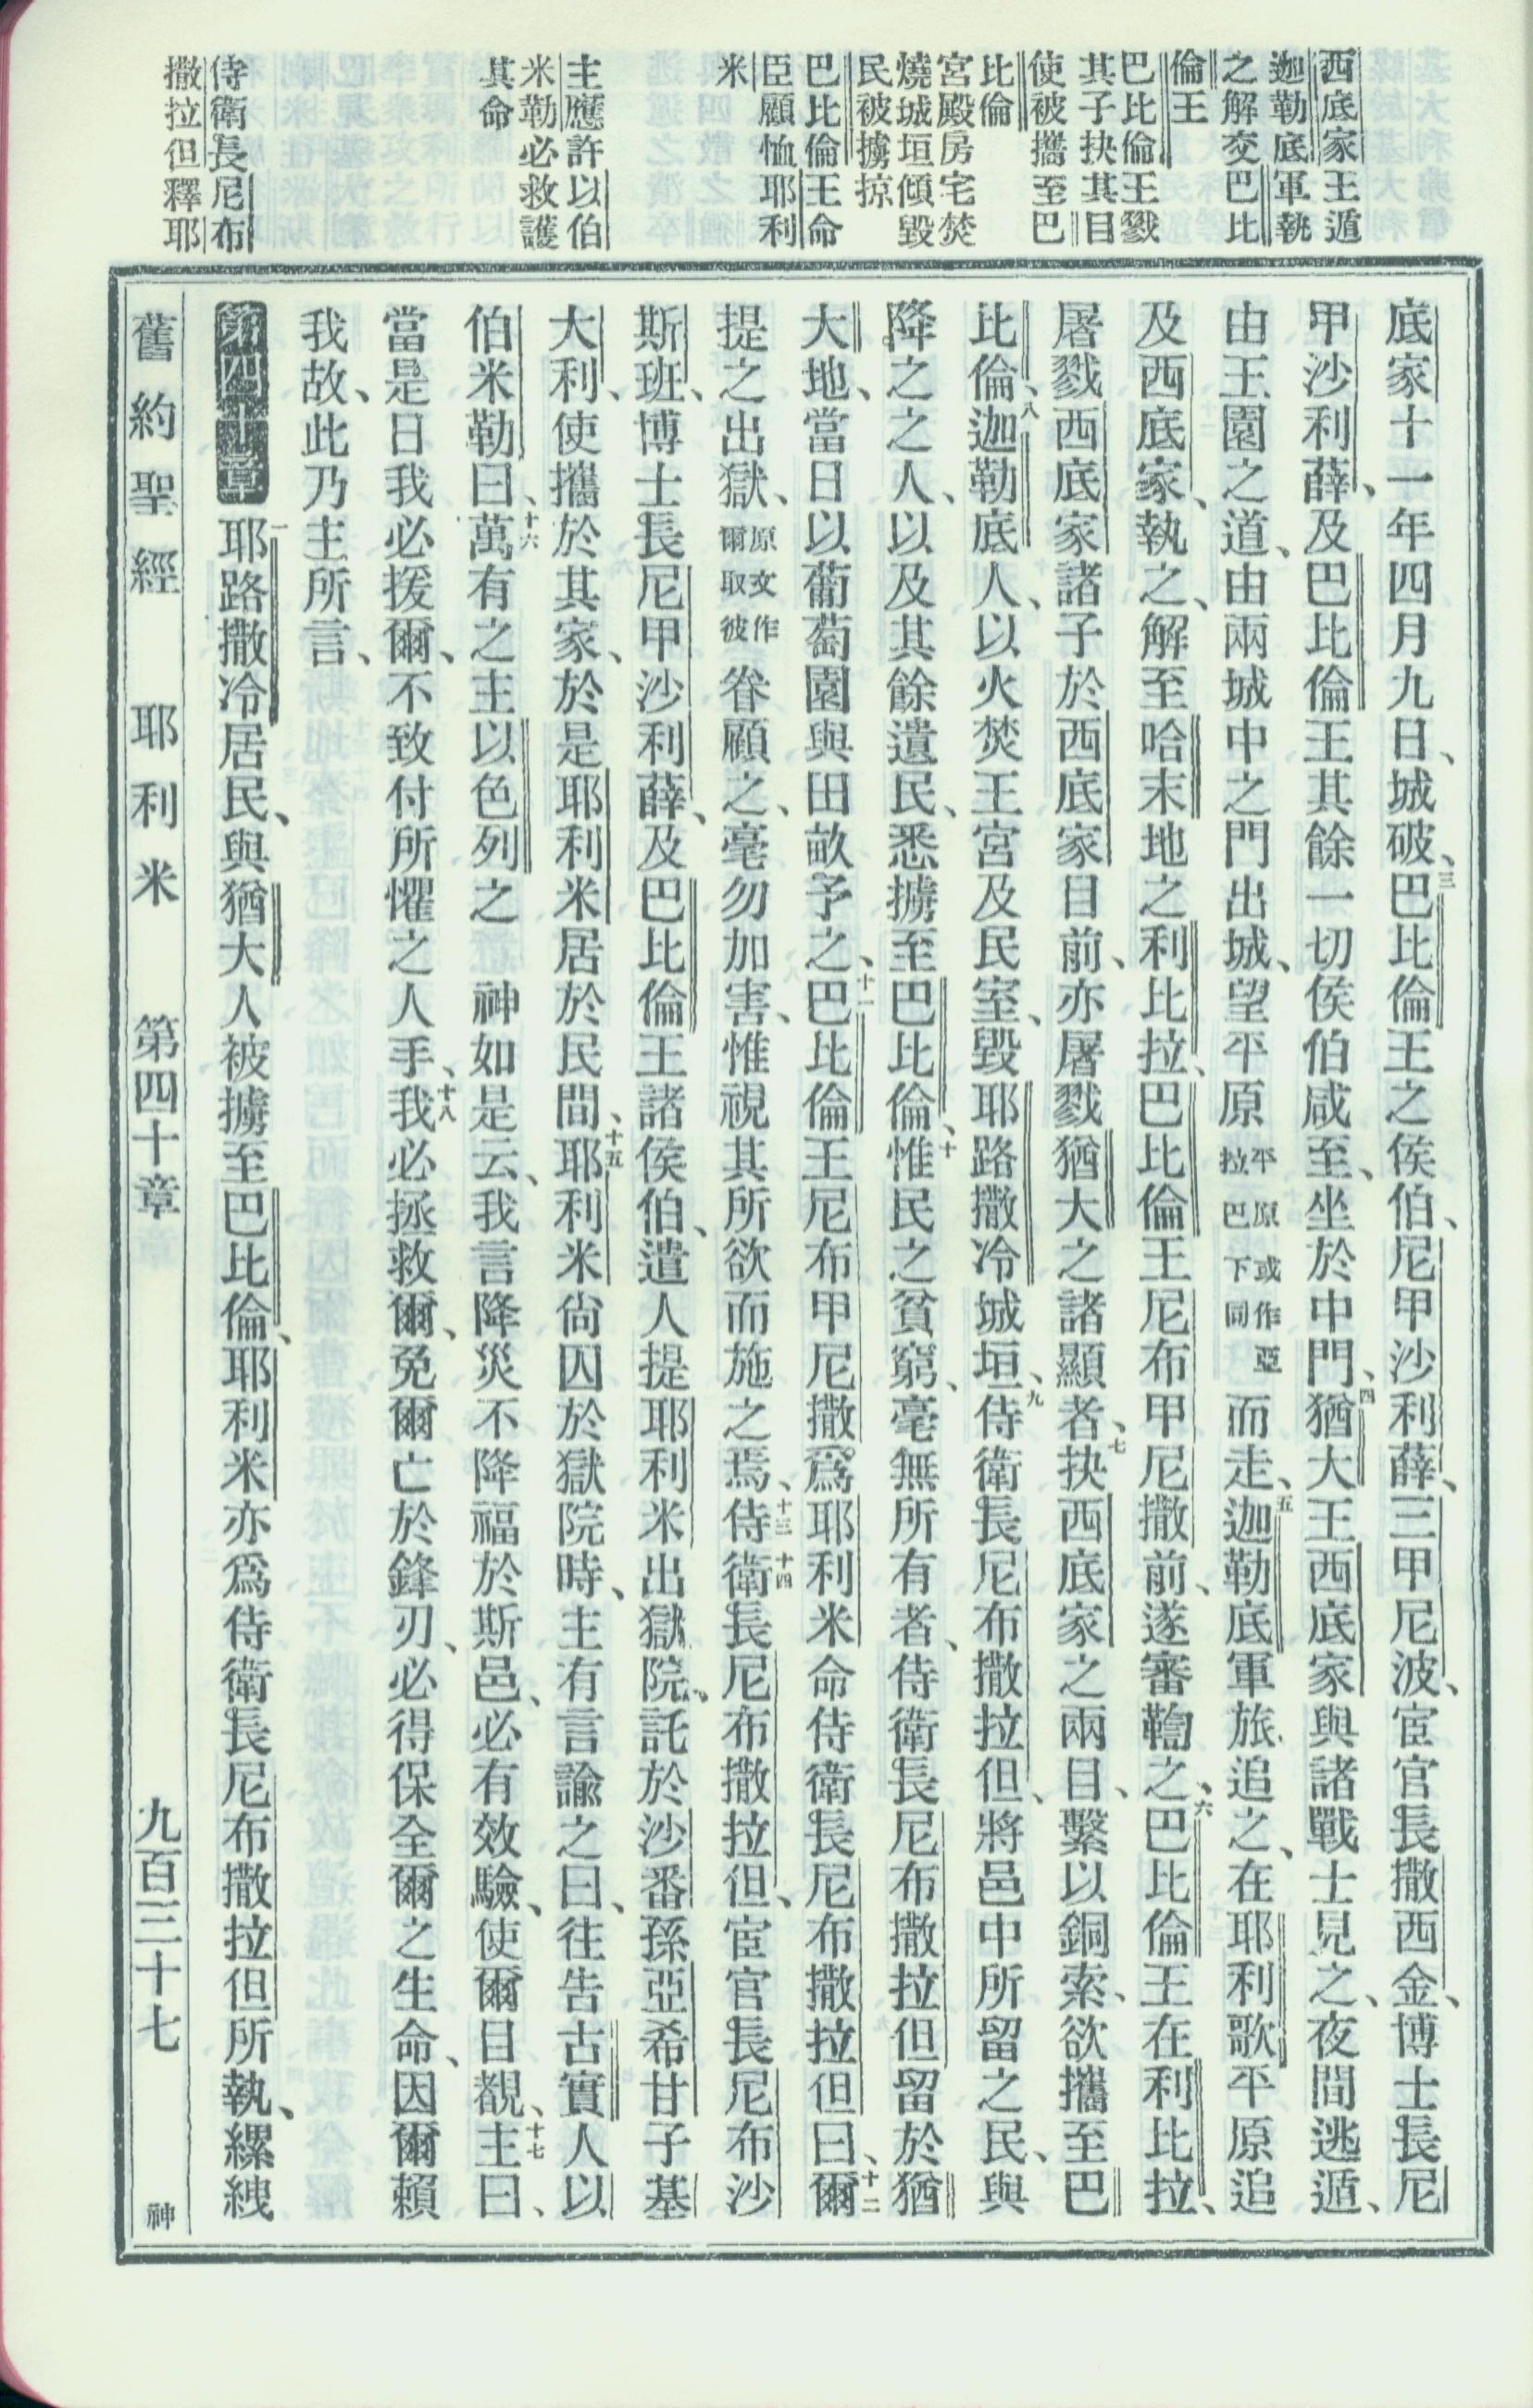 西底家王遁
迦勒底軍執
之解交巴比
倫王
巴比倫王戮
其子抉其目
使被攜至巴
比倫
宮殿房宅焚
燒城垣傾毀
民被擄掠
巴比倫王命
臣顧恤耶利
米
主應許以伯
米勒必救護
其命
侍衛長尼布
撒拉但釋耶
底家十一年四月九日、城破、三巴比倫王之侯伯、尼甲沙利薛、三甲尼波、宦官長撒西金、博士長尼
甲沙利薛、及巴比倫王其餘一切侯伯咸至、坐於中門、四猶大王西底家與諸戰士見之、夜間逃遁、
由王園之道、由兩城中之門出城、望平原平原或作亞拉巴下同而走、五迦勒底軍旅追之、在耶利歌平原追
及西底家、執之、解至哈末地之利比拉、巴比倫王尼布甲尼撒前、遂審鞫之、六巴比倫王在利比拉、
屠戮西底家諸子於西底家目前、亦屠戮猶大之諸顯者、七抉西底家之兩目、繫以銅索、欲攜至巴
比倫、八迦勒底人、以火焚王宮及民室、毀耶路撒冷城垣、九侍衛長尼布撒拉但、將邑中所留之民、與
降之之人、以及其餘遺民、悉擄至巴比倫、十惟民之貧窮、毫無所有者、侍衛長尼布撒拉但留於猶
大地、當日以葡萄園與田畝予之、十一巴比倫王尼布甲尼撒爲耶利米命侍衛長尼布撒拉但曰、十二爾
提之出獄、原文作爾取彼眷顧之、毫勿加害、惟視其所欲而施之焉、十三十四侍衛長尼布撒拉但、宦官長尼布沙
斯班、博士長尼甲沙利薛、及巴比倫王諸侯伯、遣人提耶利米出獄院、託於沙番孫亞希甘子基
大利、使攜於其家、於是耶利米居於民間、十五耶利米尙囚於獄院時、主有言諭之曰、往告古實人以
伯米勒曰、十六萬有之主以色列之 神如是云、我言降災不降福於斯邑、必有效驗、使爾目覩、十七主曰、
當是日我必援爾、不致付所懼之人手、十八我必拯救爾、免爾亡於鋒刃、必得保全爾之生命、因爾賴
我故、此乃主所言、
第四十章 一耶路撒冷居民、與猶大人被擄至巴比倫、耶利米亦爲侍衛長尼布撒拉但所執、縲絏、
舊約聖經 耶利米 第四十章 九百三十七 神